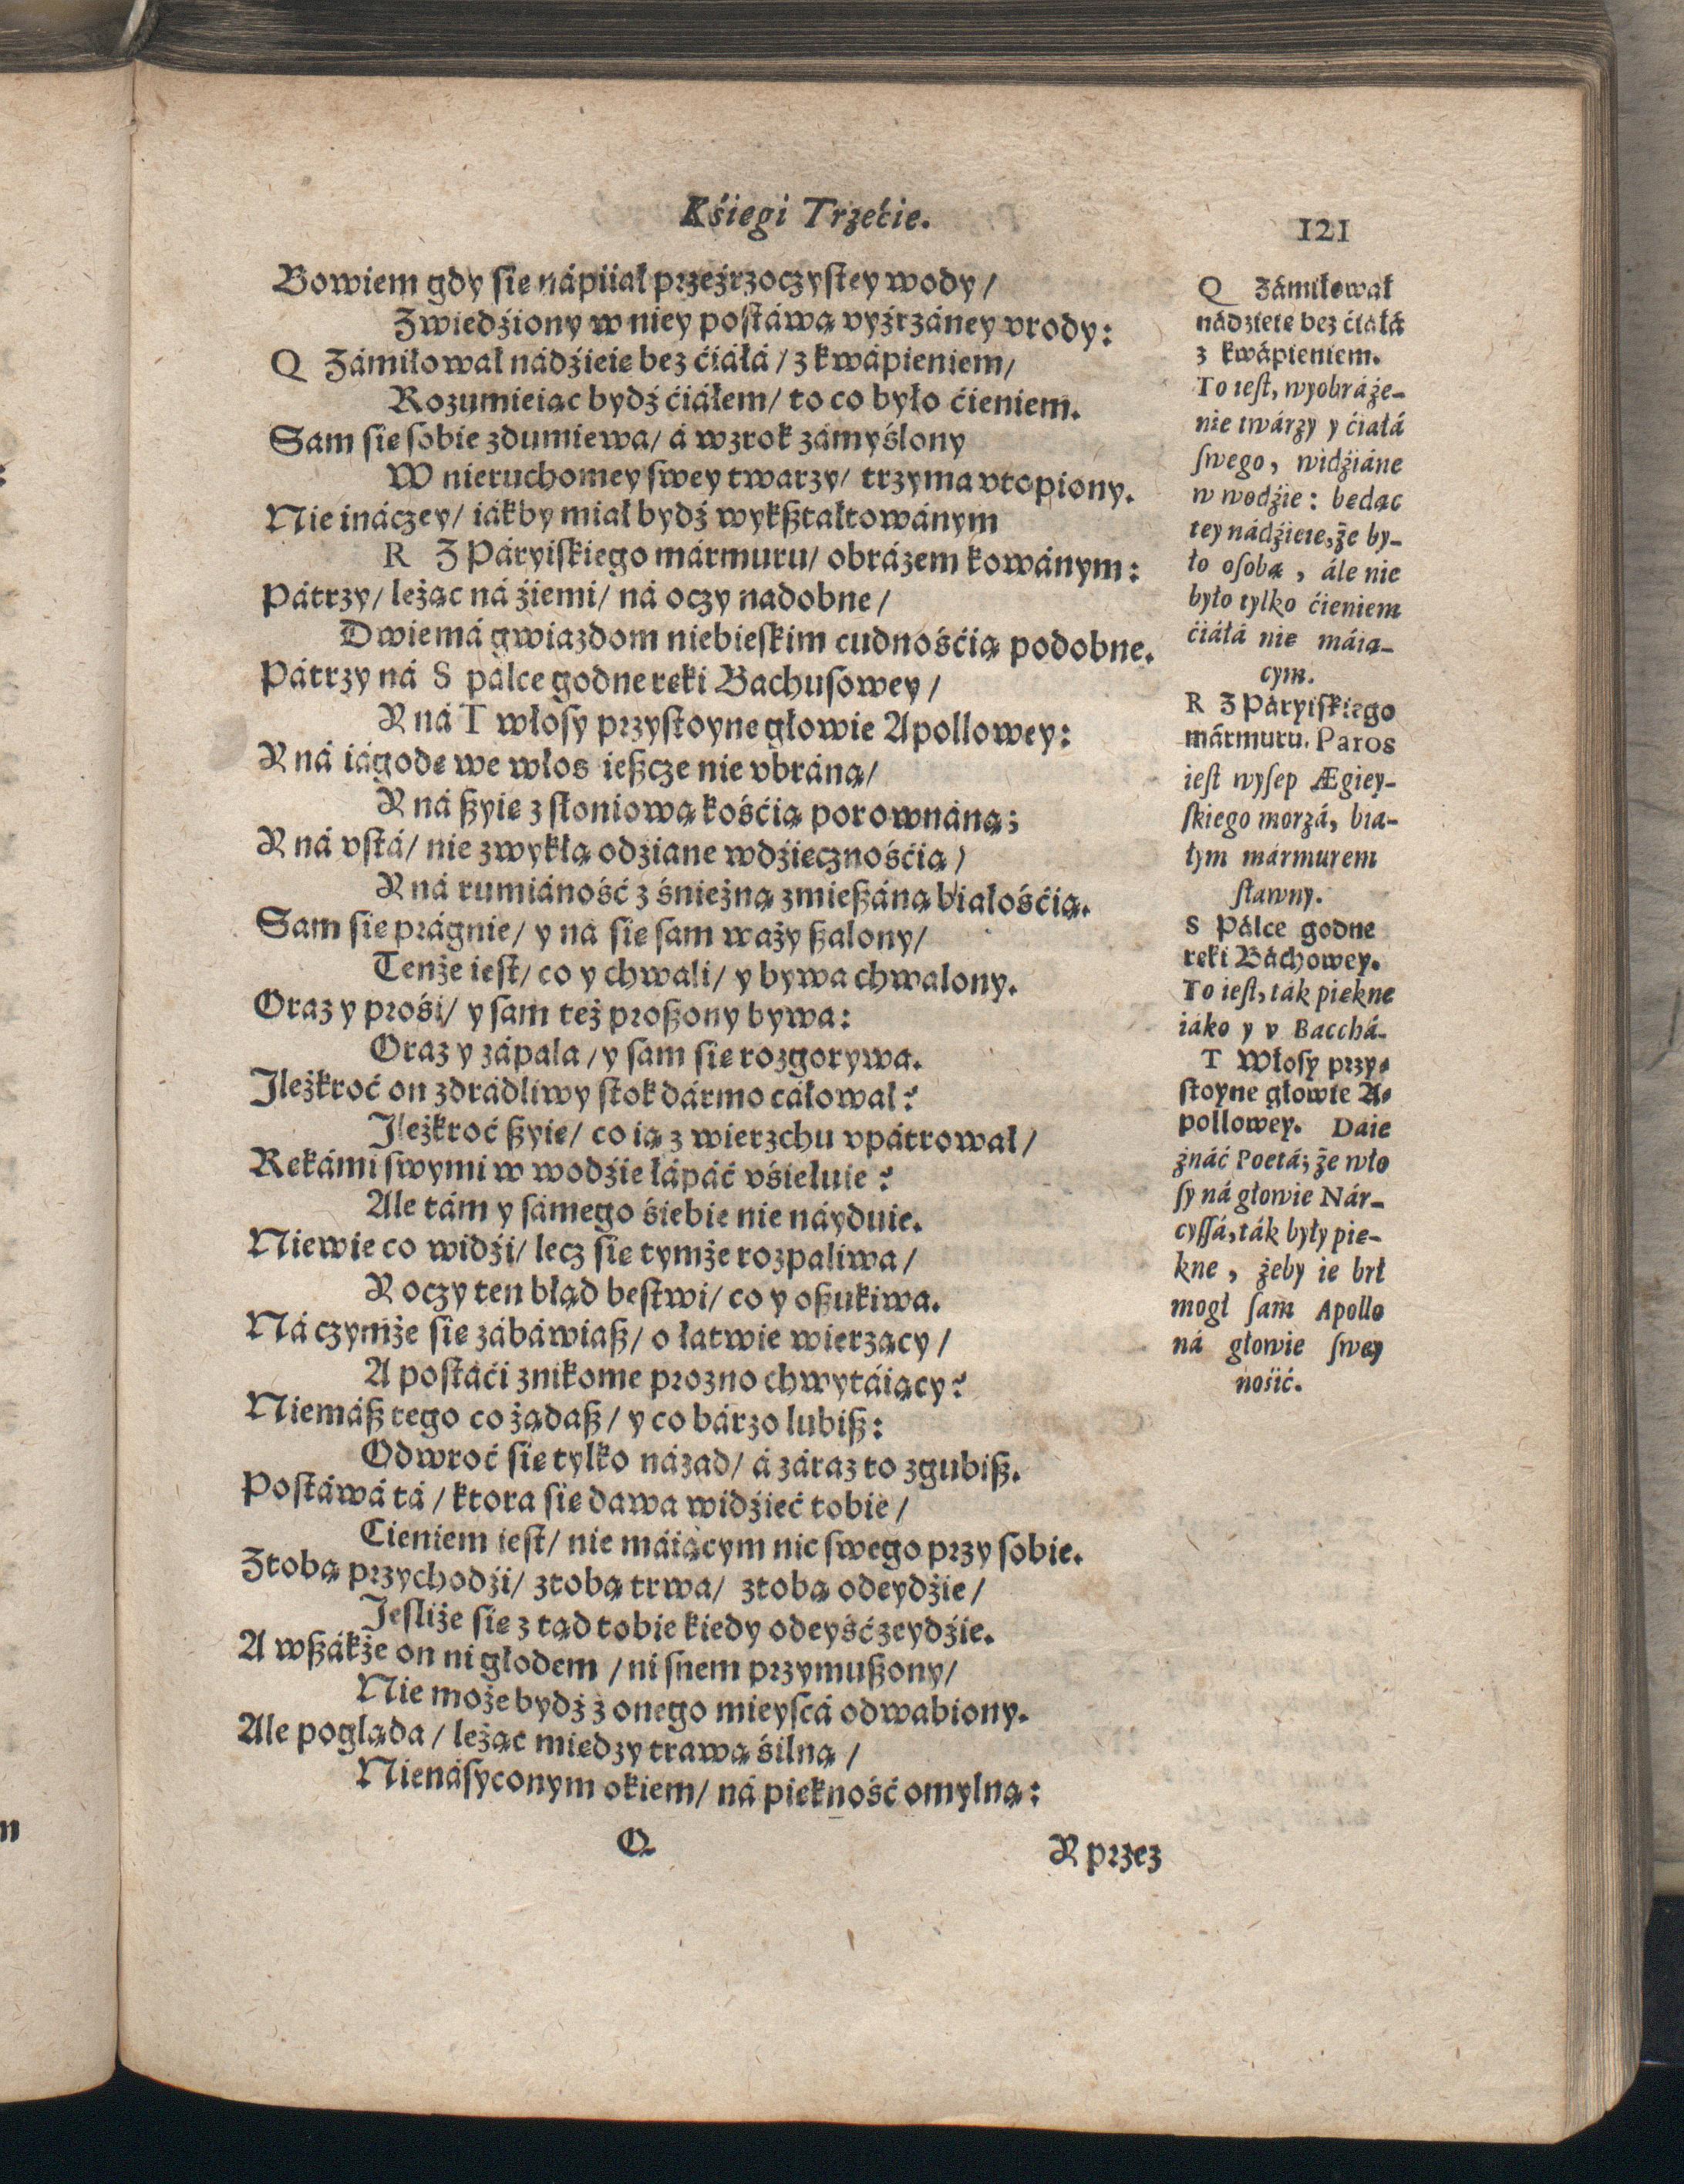 Kśiegi Trzećie.
121
Bowiem gdy sie nápiiał przeźrzoczystey wody /
Zwiedźiony w niey postáwą vyźrzáney vrody:
Q Zámiłował nádźieie bez ćiáłá / z kwápieniem /
Rozumieiąc bydź ćiáłem / to co było ćieniem.
Sam sie sobie zdumiewa / á wzrok zámyślony
W nieruchomey swey twarzy / trzyma vtopiony.
Nie ináczey / iákby miał bydź wykształtowánym
R Z Páryiskiego mármuru / obrázem kowánym:
Pátrzy / leżąc ná źiemi / ná oczy nadobne /
Dwiemá gwiazdom niebieskim cudnośćią podobne.
Pátrzy ná S pálce godne ręki Bachusowey /
Y ná T włosy przystoyne głowie Apollowey:
Y ná iágodę we włos ieszcze nie vbráną /
Y ná szyię z słoniową kośćią porownáną;
Y ná vstá / nie zwykłą odziane wdźięcznośćią /
Y ná rumiáność z śnieżną zmieszáną białośćią.
Sam sie prágnie / y ná sie sam waży szalony /
Tenże iest / co y chwali / y bywa chwalony.
Oraz y prośi / y sam też proszony bywa:
Oraz y zápala / y sam sie rozgorywa.
Jleżkroć on zdrádliwy stok dármo cáłował?
Jleżkroć szyię / co ią z wierzchu vpátrował /
Rękámi swymi w wodźie łápáć vśiełuie?
Ale tám y sámego śiebie nie náyduie.
Niewie co widźi / lecz sie tymże rozpaliwa /
Y oczy ten błąd bestwi / co y oszukiwa.
Ná czymże sie zábáwiasz / o łatwie wierzący /
A postáći znikome prozno chwytáiący?
Niemász tego co żądasz / y co bárzo lubisz:
Odwroć sie tylko názad / á záraz to zgubisz.
Postáwá tá / ktora sie dawa widźieć tobie /
Cieniem iest / nie máiącym nic swego przy sobie.
Ztobą przychodźi / ztobą trwa / ztobą odeydźie /
Jesliże sie z tąd tobie kiedy odeyść zeydźie.
A wszákże on ni głodem / ni snem przymuszony /
Nie może bydź z onego mieyscá odwabiony.
Ale pogląda / leżąc miedzy trawą śilną /
Nienásyconym okiem / ná piękność omylną:
Q
Y przez
Q Zámiłował
nádzieie bez ćiáłá
z kwápieniem.
To iest, wyobráże-
nie twárzy y ćiałá
swego, widźiáne
w wodźie: będąc
tey nádźieie, że by-
ło osobą, ále nie
było tylko ćieniem
ćiáłá nie máią-
cym.
R Z Páryiskiego
mármuru. Paros
iest wysep Ægiey-
skiego morzá, bia-
łym mármurem
sławny.
S Pálce godne
ręki Báchowey.
To iest, ták piękne
iáko y v Bacchá.
T Włosy przy-
stoyne głowie A-
pollowey. Daie
znáć Poetá; że wło
sy ná głowie Nár-
cyssá, ták były pię-
kne, żeby ie był
mogł sam Apollo
ná głowie swey
nośić.